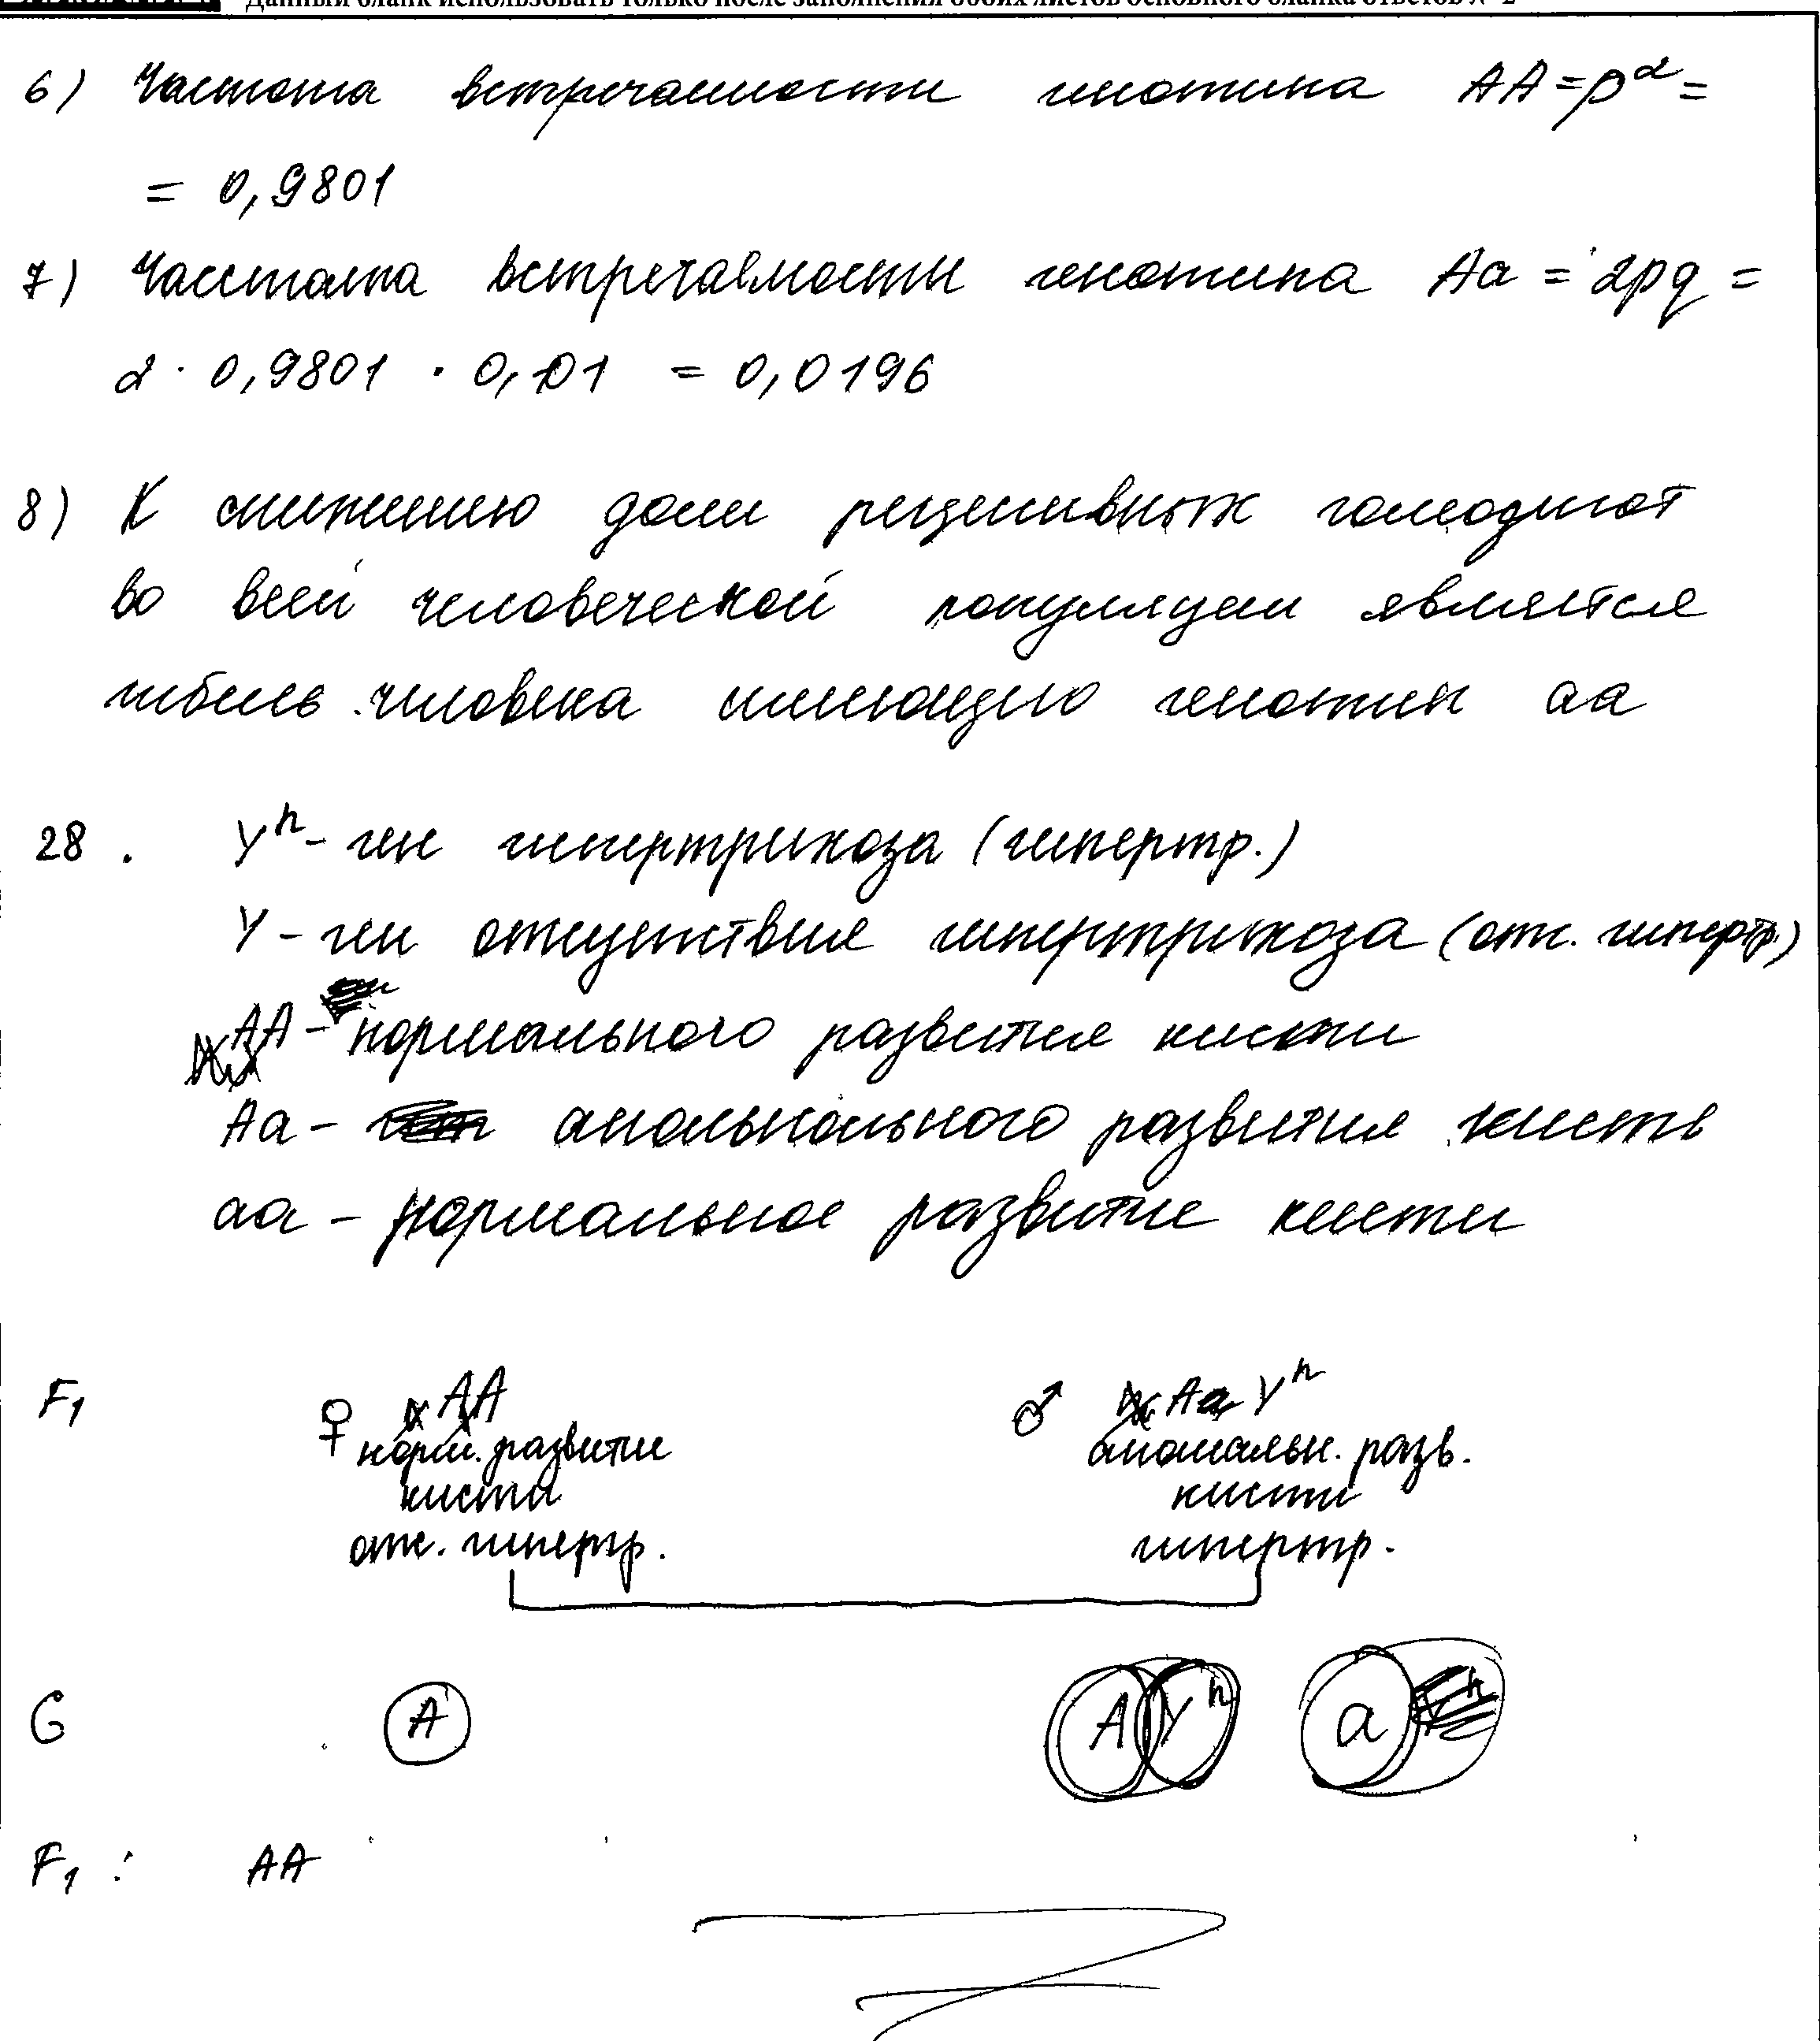 Данный бланк использовать только после заполнения обоих листов основного бланка ответов № 2
6) Частота встречаемости генотипа AA = p² =
= 0,9801
7) Часстота встречаемости генотипа Aa = 2pq =
2 · 0,9801 · 0,01 = 0,0196
8) К снижению доли рецесивных гомозигот
во всей человеческой популяции является
гибель человека имеющию генотип aa
28. Yʰ - ген гипертрихоза (гипертр.)
Y - ген отсутствия гипертрихоза (отс. гипертр.)
AA - нормального развития кисти
Aa - анольнольного развития кисть
aa - нормальное развитие кисти
F₁ ♀ AA ♂ Aa Yʰ
норм. развити аномальн. разв.
кисти кисти
отс. гипертр. гипертр.
G A A Yʰ a
F₁ : AA